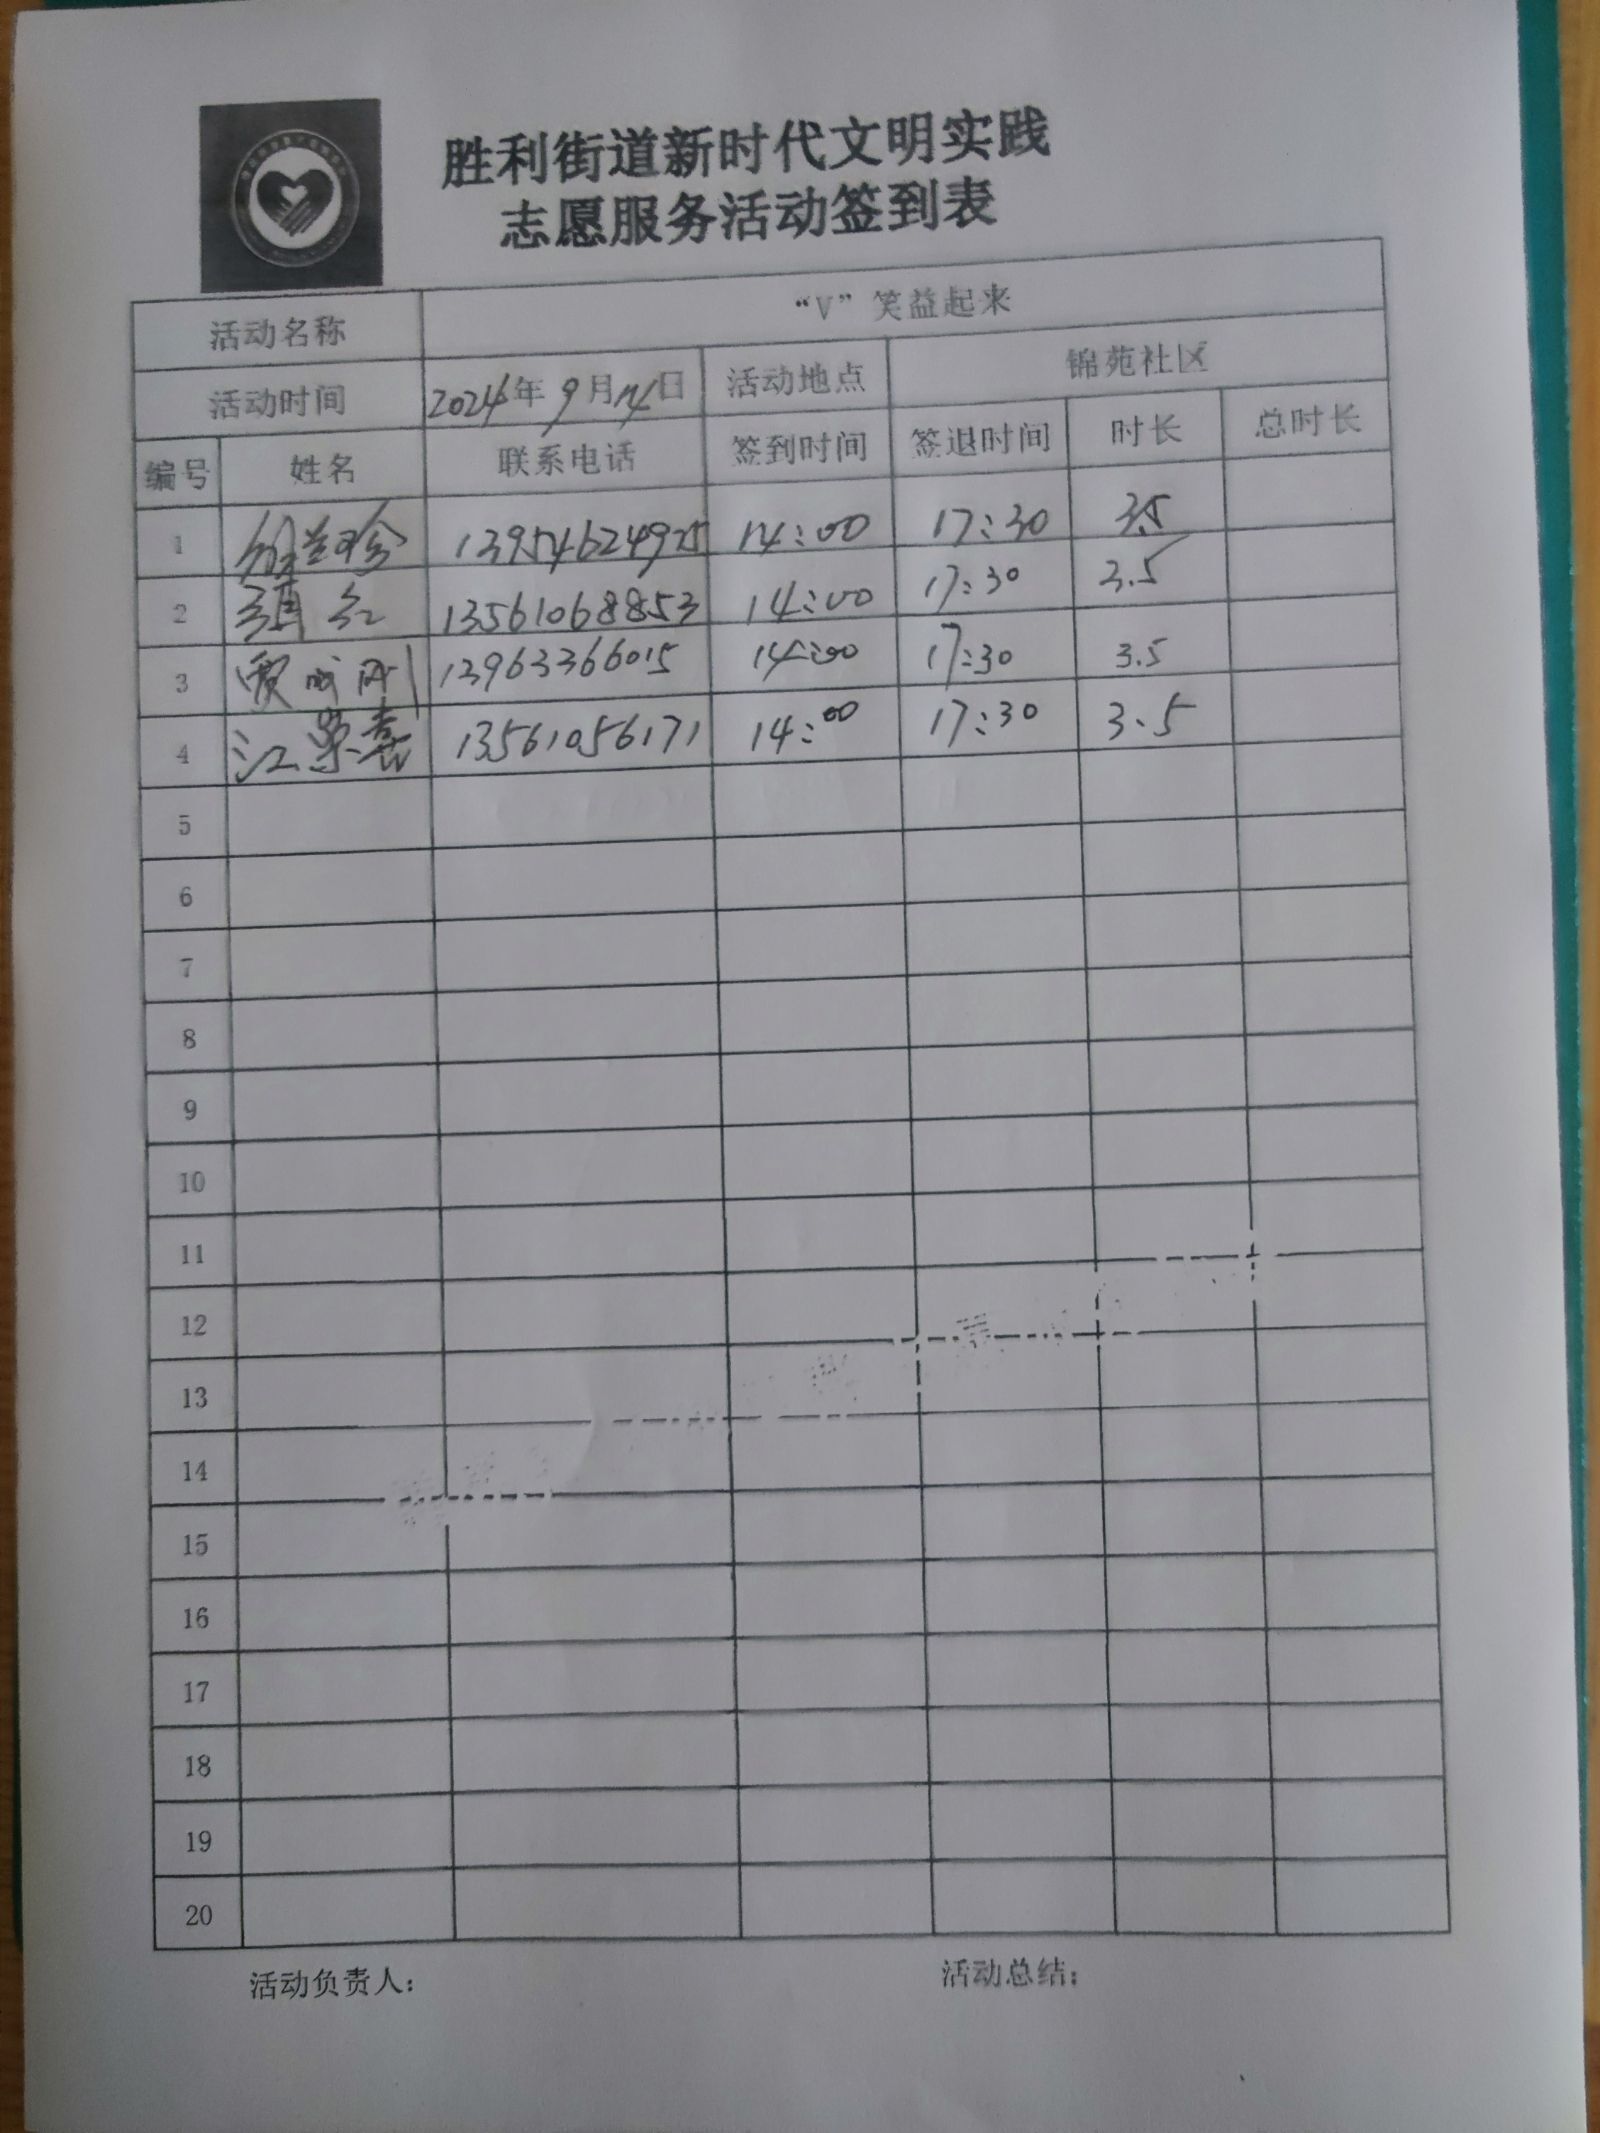 胜利街道新时代文明实践
志愿服务活动签到表
活动名称 “V”笑益起来
活动时间 2024年9月14日 活动地点 锦苑社区
编号 姓名 联系电话 签到时间 签退时间 时长 总时长
1 13954624925 14:00 17:30 3.5
2 红 13561068853 14:00 17:30 3.5
3 贾成刚 13963366015 14:00 17:30 3.5
4 江荣喜 13561056171 14:00 17:30 3.5
5
6
7
8
9
10
11
12
13
14
15
16
17
18
19
20
活动负责人： 活动总结：